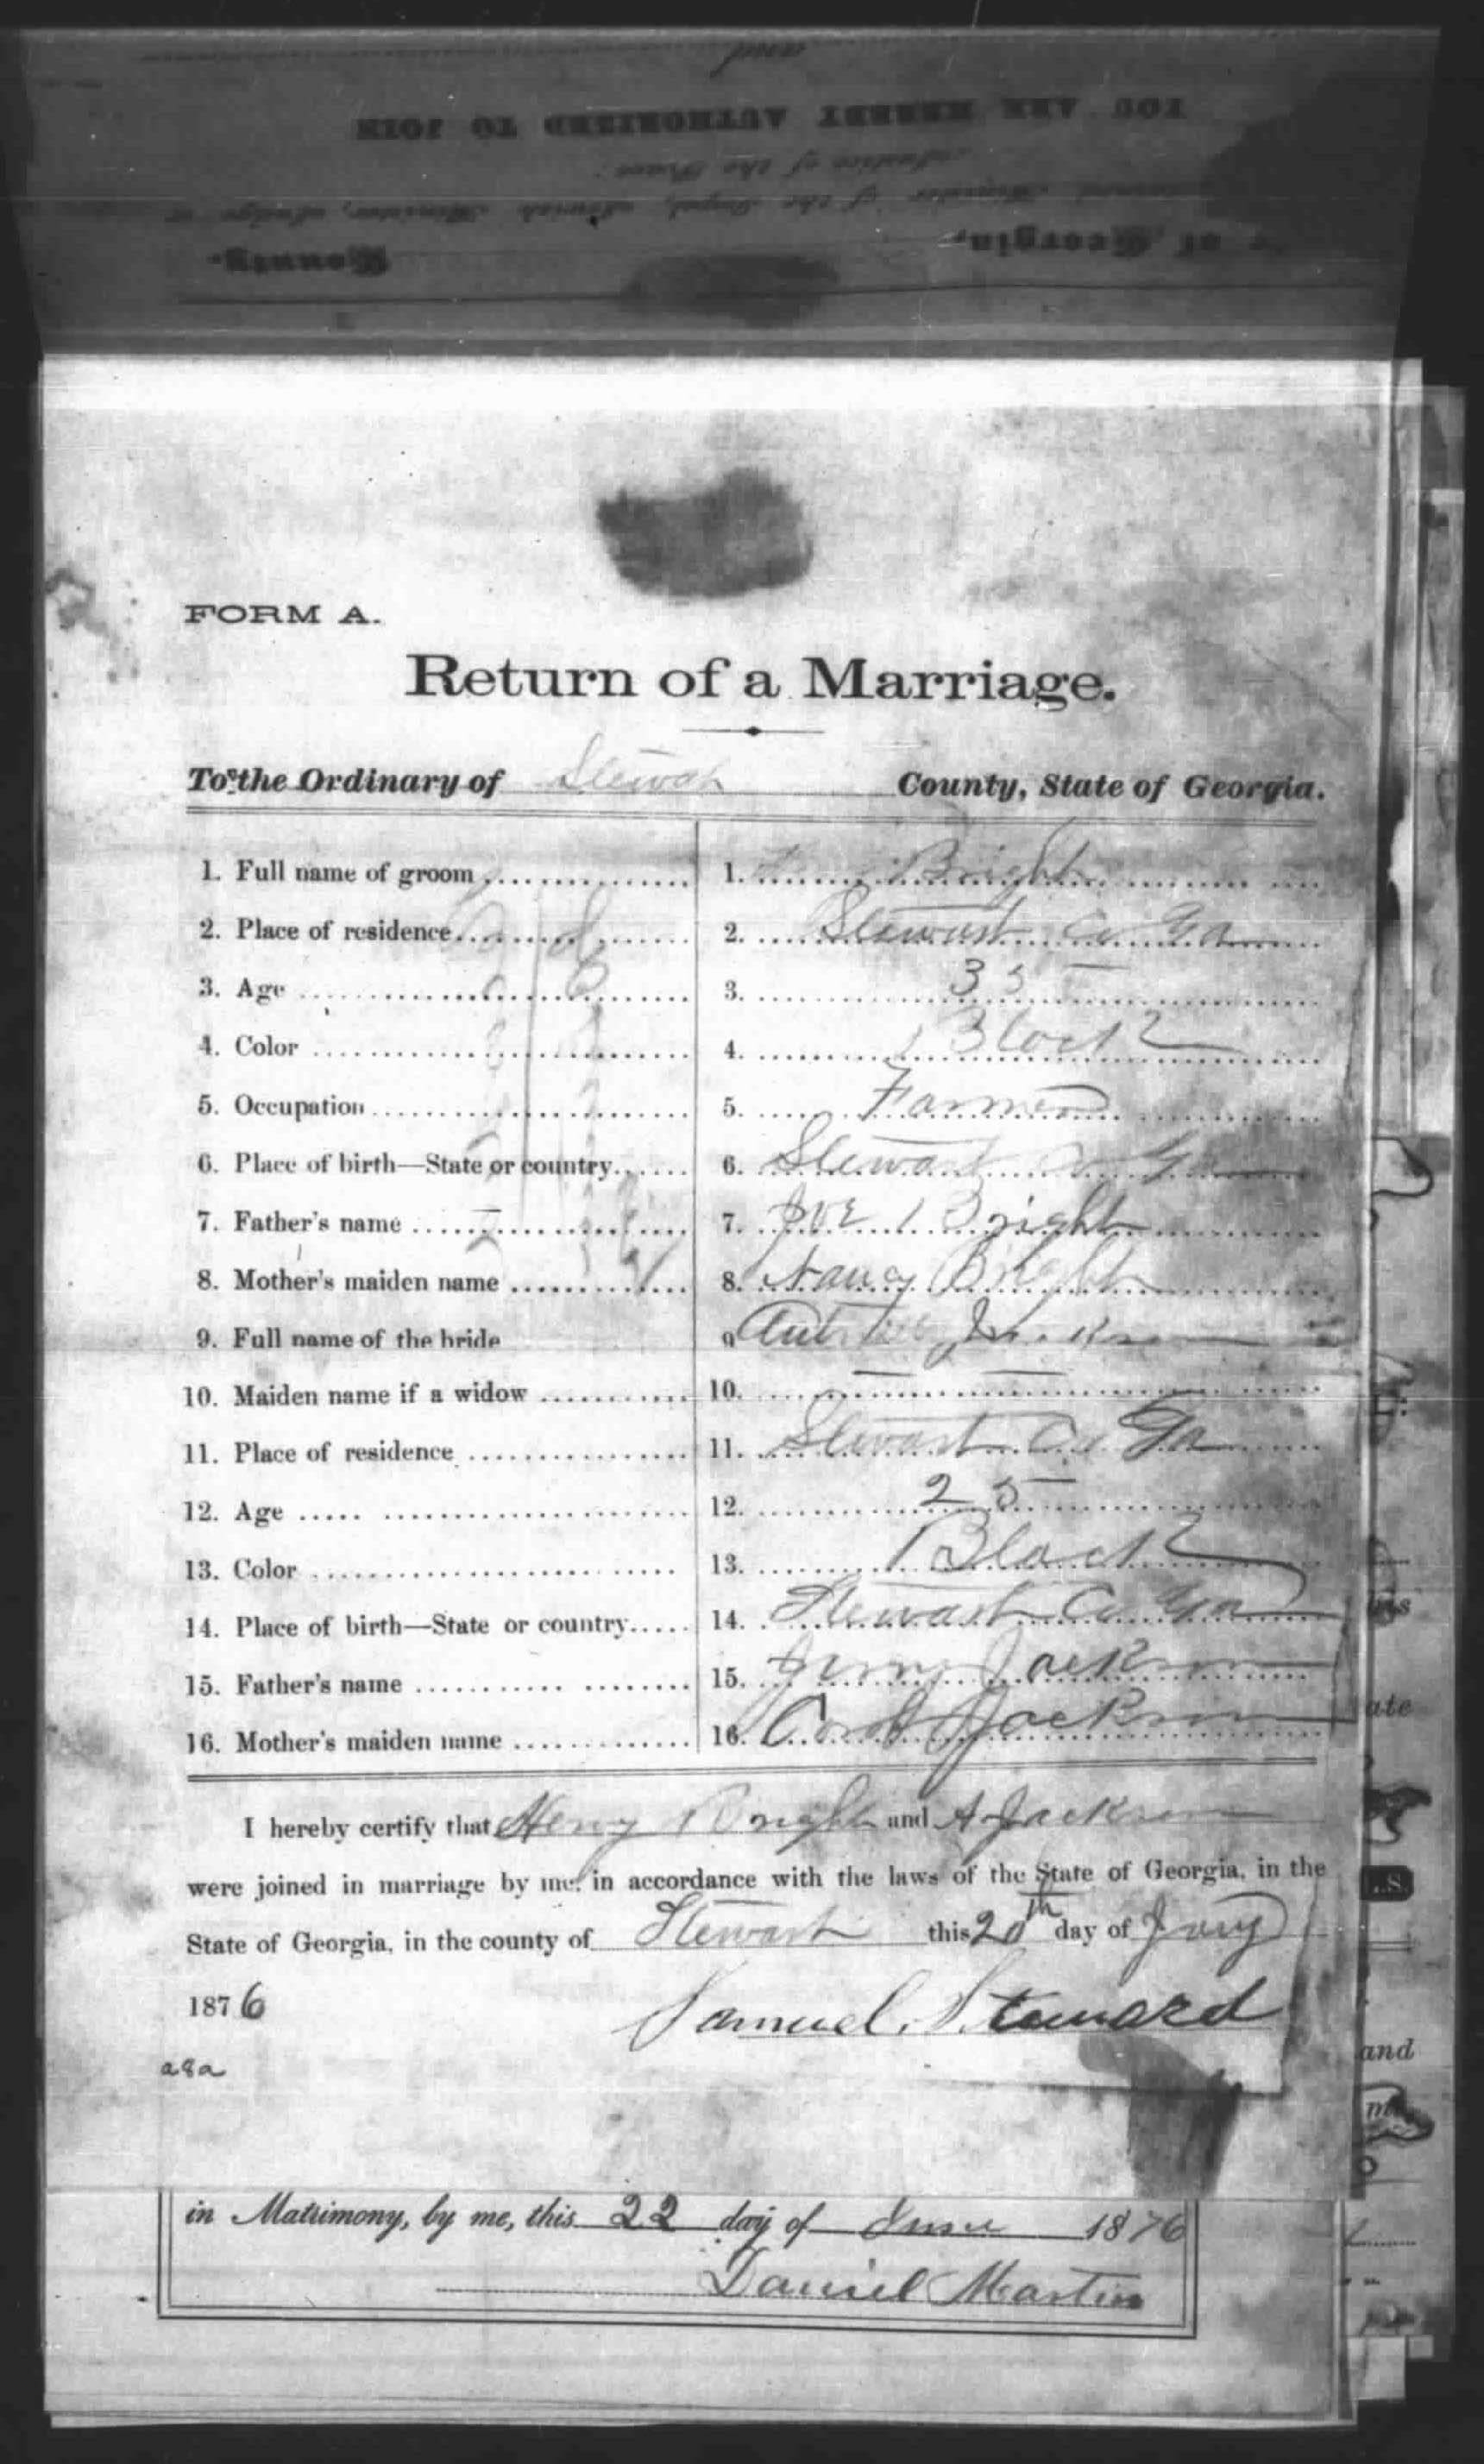 YOU ARE HEREBY AUTHORIZED TO JOIN
Justice of the Peace:
Minister of the Gospel, Jewish Minister, Judge
of Georgia,
County.
FORM A.
Return of a Marriage.
To the Ordinary of Stewart County, State of Georgia.
1. Full name of groom 1. Bright
2. Place of residence 2. Stewart Co Ga
3. Age 3. 35
4. Color 4. Black
5. Occupation 5. Farmer
6. Place of birth—State or country 6. Stewart Co Ga
7. Father's name 7. Joe Bright
8. Mother's maiden name 8. Nancy Bright
9. Full name of the bride 9 Jackson
10. Maiden name if a widow 10. — —
11. Place of residence 11. Stewart Co Ga
12. Age 12. 25
13. Color 13. Black
14. Place of birth—State or country 14. Stewart Co Ga
15. Father's name 15. Jackson
16. Mother's maiden name 16. Jackson
I hereby certify that Henry Bright and A Jackson
were joined in marriage by me, in accordance with the laws of the State of Georgia, in the
State of Georgia, in the county of Stewart this 20th day of Jany
1876
Samuel Steward
in Matrimony, by me, this 22 day of June 1876
Daniel Martin
ate
L.S.
and